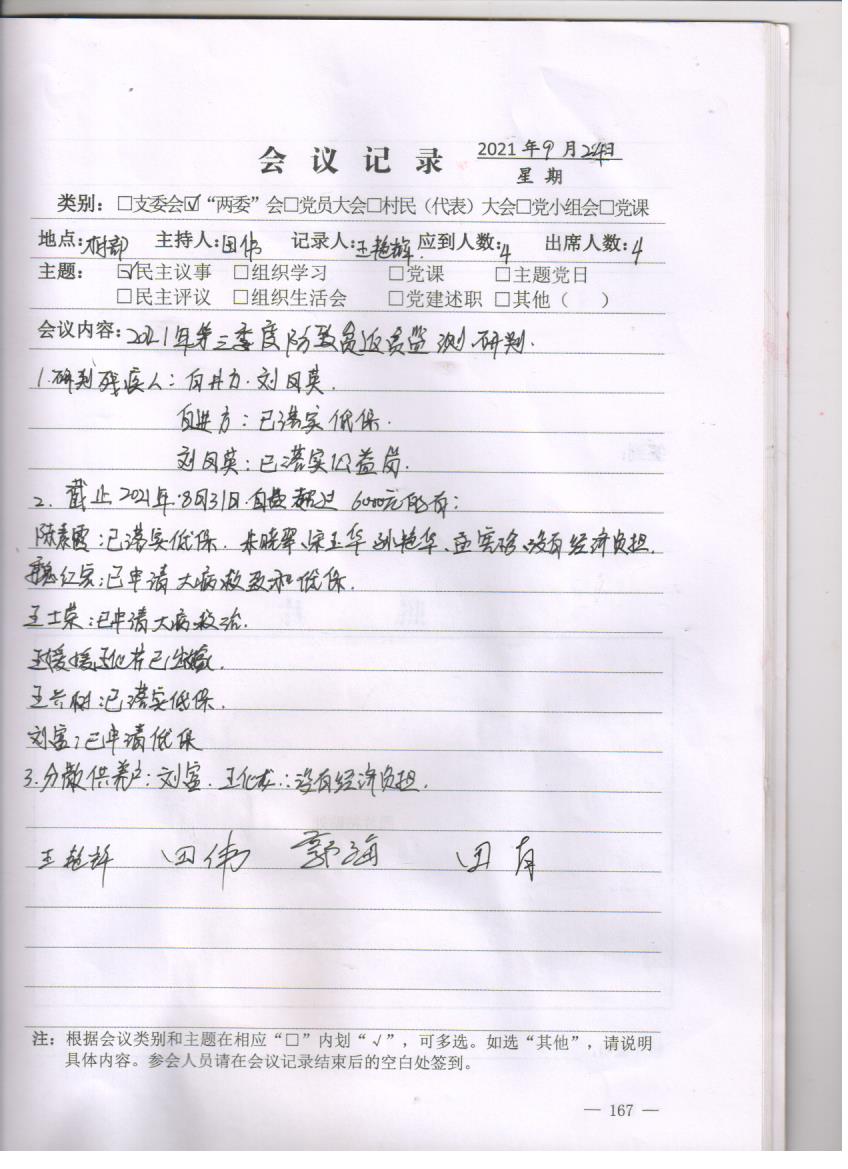 会议记录 2021年9月24日
星期
类别：□支委会☑“两委”会□党员大会□村民（代表）大会□党小组会□党课
地点：村部 主持人：田伟 记录人：王艳辉 应到人数：4 出席人数：4
主题：☑民主议事 □组织学习 □党课 □主题党日
□民主评议 □组织生活会 □党建述职 □其他（ ）
会议内容：2021年第三季度防致贫返贫监测研判.
1.研判残疾人：白井方.刘凤英.
白进方：已落实低保.
刘凤英：已落实公益岗.
2.截止2021年8月31日自负超过6000元的有：
陈素霞：已落实低保.朱晓翠、宋玉华、孙艳华、没有经济负担.
魏红实：已申请大病救助和低保.
王士荣：已申请大病救治.
王媛媛 已出嫁.
王兴树：已落实低保.
刘富：已申请低保
3.分散供养户：刘富.王化龙：没有经济负担.
王艳辉 田伟 郭海 田有
注：根据会议类别和主题在相应“□”内划“√”，可多选。如选“其他”，请说明
具体内容。参会人员请在会议记录结束后的空白处签到。
— 167 —